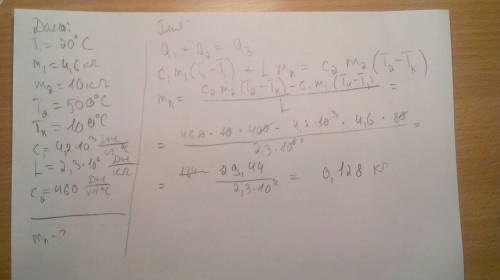 Дано:
T = 20°C
m₁ = 4,6 кг
m₂ = 10 кг
T₂ = 500°C
Tк = 100°C
c₁ = 4,2·10³ Дж/кг°C
L = 2,3·10⁶ Дж/кг
c₂ = 460 Дж/кг°C
mп - ?
Q₁ + Q₂ = Q₃
c₁m₁(Tк-T₁) + L mп = c₂ m₂ (T₂-Tк)
mп = (c₂ m₂ (T₂-Tк) - c₁ m₁ (Tк-T₁)) / L =
= (460 · 10 · 400 - 4,2·10³ · 4,6 · 80) / 2,3·10⁶ =
= 29,44 / 2,3·10² = 0,128 кг